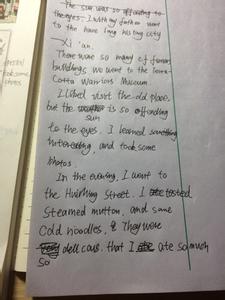 The sun was so offending to
the eyes. I with my father went
to the have long history city
— Xi'an.
There were so many of famous
buildings we went to the terra-
Cotta Warriors Museum.
I liked visit the old place,
but the sun is so offending
to the eyes. I learned something
interesting, and took some
photos.
In the evening, I went to
the Huiming Street. I tasted
Steamed mutton, and some
Cold noodles, & They were
delicous. that I ate so much
so
took some
photos